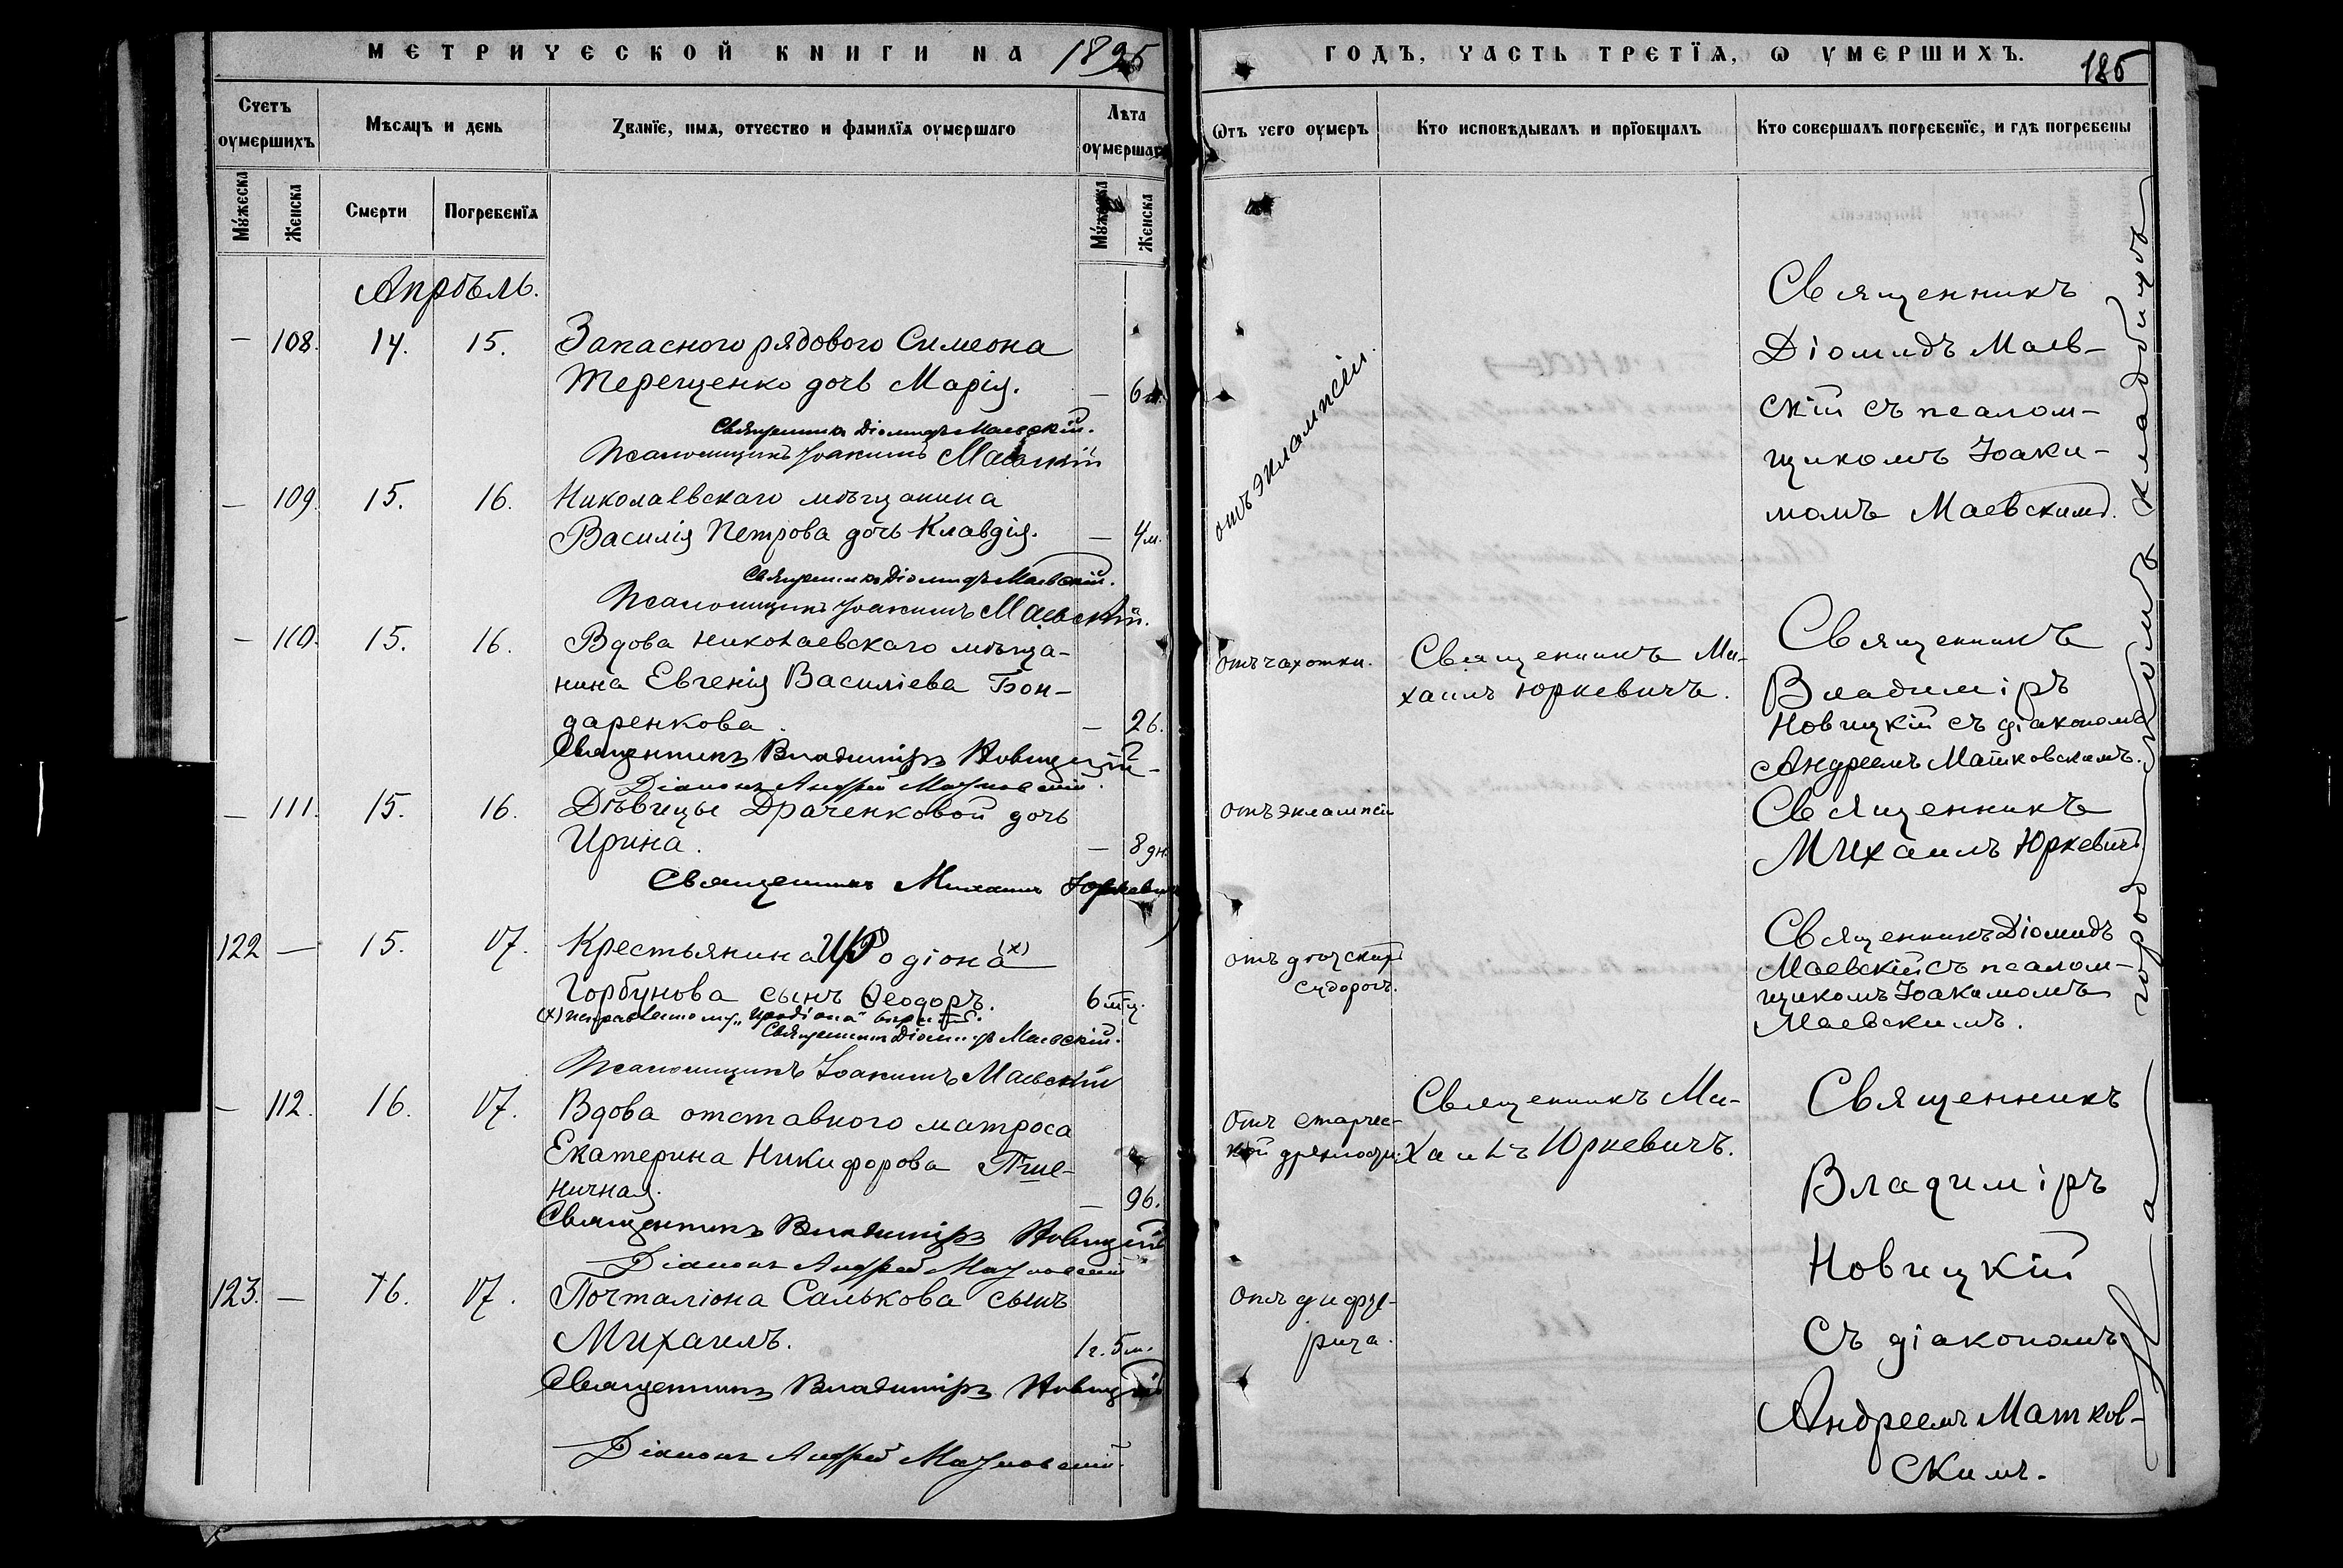 МЕТРИЧЕСКОЙ КНИГИ НА 1895
ГОДЪ, ЧАСТЬ ТРЕТЇѦ, Ѡ УМЕРШИХЪ.
185
Счетъ оумершихъ
Мѣсѧцъ и день
Званїе, имѧ, отчество и фамилїѧ оумершаго
Лѣта оумершаго
Ѿтъ чего оумеръ
Кто исповѣдывалъ и прїобщалъ
Кто совершалъ погребенїе, и гдѣ погребены
Мужеска
Женска
Смерти
Погребенїѧ
Мужеска
Женска
Апрѣль.
— 108. 14. 15. Запаснаго рядового Симеона
Терещенко дочь Марія. — 6 м.
Священникъ Діомидъ Маевскій.
Псаломщикъ Іоакимъ Маевскій
отъ эклампсіи.
Священникъ
Діомидъ Маев-
скій съ псалом-
щикомъ Іоаки-
момъ Маевскимъ.
— 109. 15. 16. Николаевскаго мѣщанина
Василія Петрова дочь Клавдія. — 4 м.
Священникъ Діомидъ Маевскій.
Псаломщикъ Іоакимъ Маевскій.
— 110. 15. 16. Вдова николаевскаго мѣща-
нина Евгенія Василіева Бон-
даренкова. — 26.
Священникъ Владиміръ Новицкій
Діаконъ Андрей Матковскій.
отъ чахотки.
Священникъ Ми-
хаилъ Юркевичъ.
Священникъ
Владиміръ
Новицкій съ діакономъ
Андреемъ Матковскимъ.
— 111. 15. 16. Дѣвицы Драченковой дочь
Ирина. — 8 дн.
Священникъ Михаилъ Юркевичъ
отъ эклампсіи
Священникъ
Михаилъ Юркевичъ.
122 — 15. 17. Крестьянина Иродіона (х)
Горбунова сынъ Ѳеодоръ. 6 мц.
(х) исправленному „Иродіона" вѣрить.
Священникъ Діомидъ Маевскій.
Псаломщикъ Іоакимъ Маевскій
отъ дѣтскихъ
судорогъ.
Священникъ Діомидъ
Маевскій съ псалом-
щикомъ Іоакимомъ
Маевскимъ.
— 112. 16. 17. Вдова отставного матроса
Екатерина Никифорова Пше-
ничная. — 96.
Священникъ Владиміръ Новицкій
Діаконъ Андрей Матковскій
Отъ старчес-
кой дряхлости.
Священникъ Ми-
хаилъ Юркевичъ.
Священникъ
Владиміръ
Новицкій
съ діакономъ
Андреемъ Матков-
скимъ.
123. — 16. 17. Почталіона Салькова сынъ
Михаилъ. 1 г. 5 м.
Священникъ Владиміръ Новицкій
Діаконъ Андрей Матковскій.
отъ дифте-
рита.
На городскомъ кладбищѣ